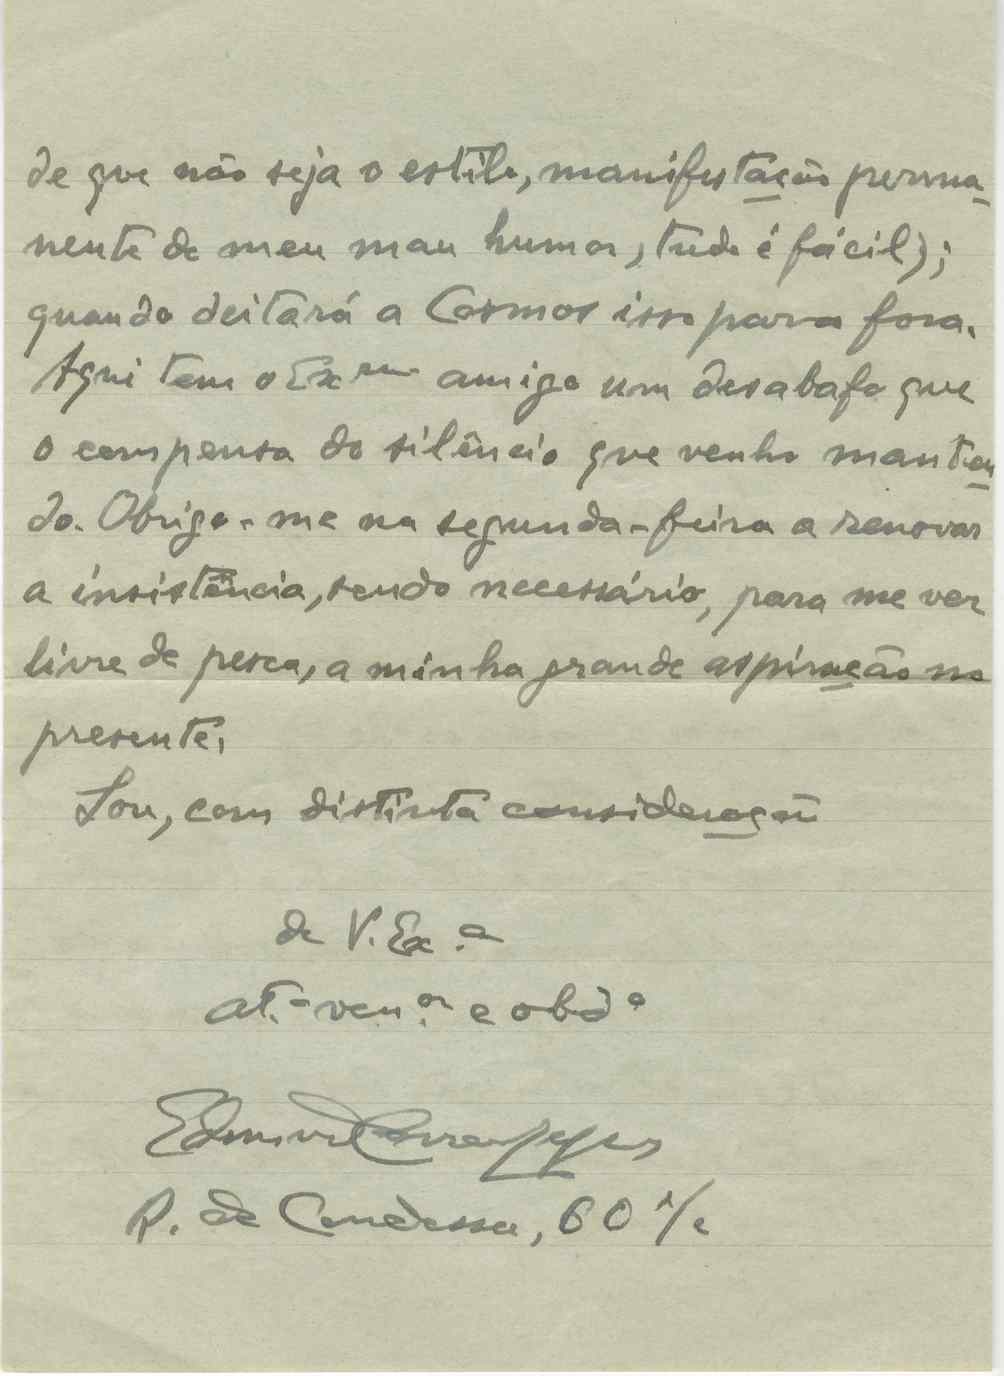 de que não seja o estilo, manifestação perma-
nente de meu mau humor, tudo é fácil);
quando deitará a Cosmos isso para fora.
Aqui tem o Exmo amigo um desabafo que
o compensa do silêncio que venho manten-
do. Obrigo-me na segunda-feira a renovar
a insistência, sendo necessário, para me ver
livre de pesca, a minha grande aspiração no
presente.
Sou, com distinta consideração
de V. Ex.a
at.o ven.or e obdo
R. da Condessa, 60 r/c